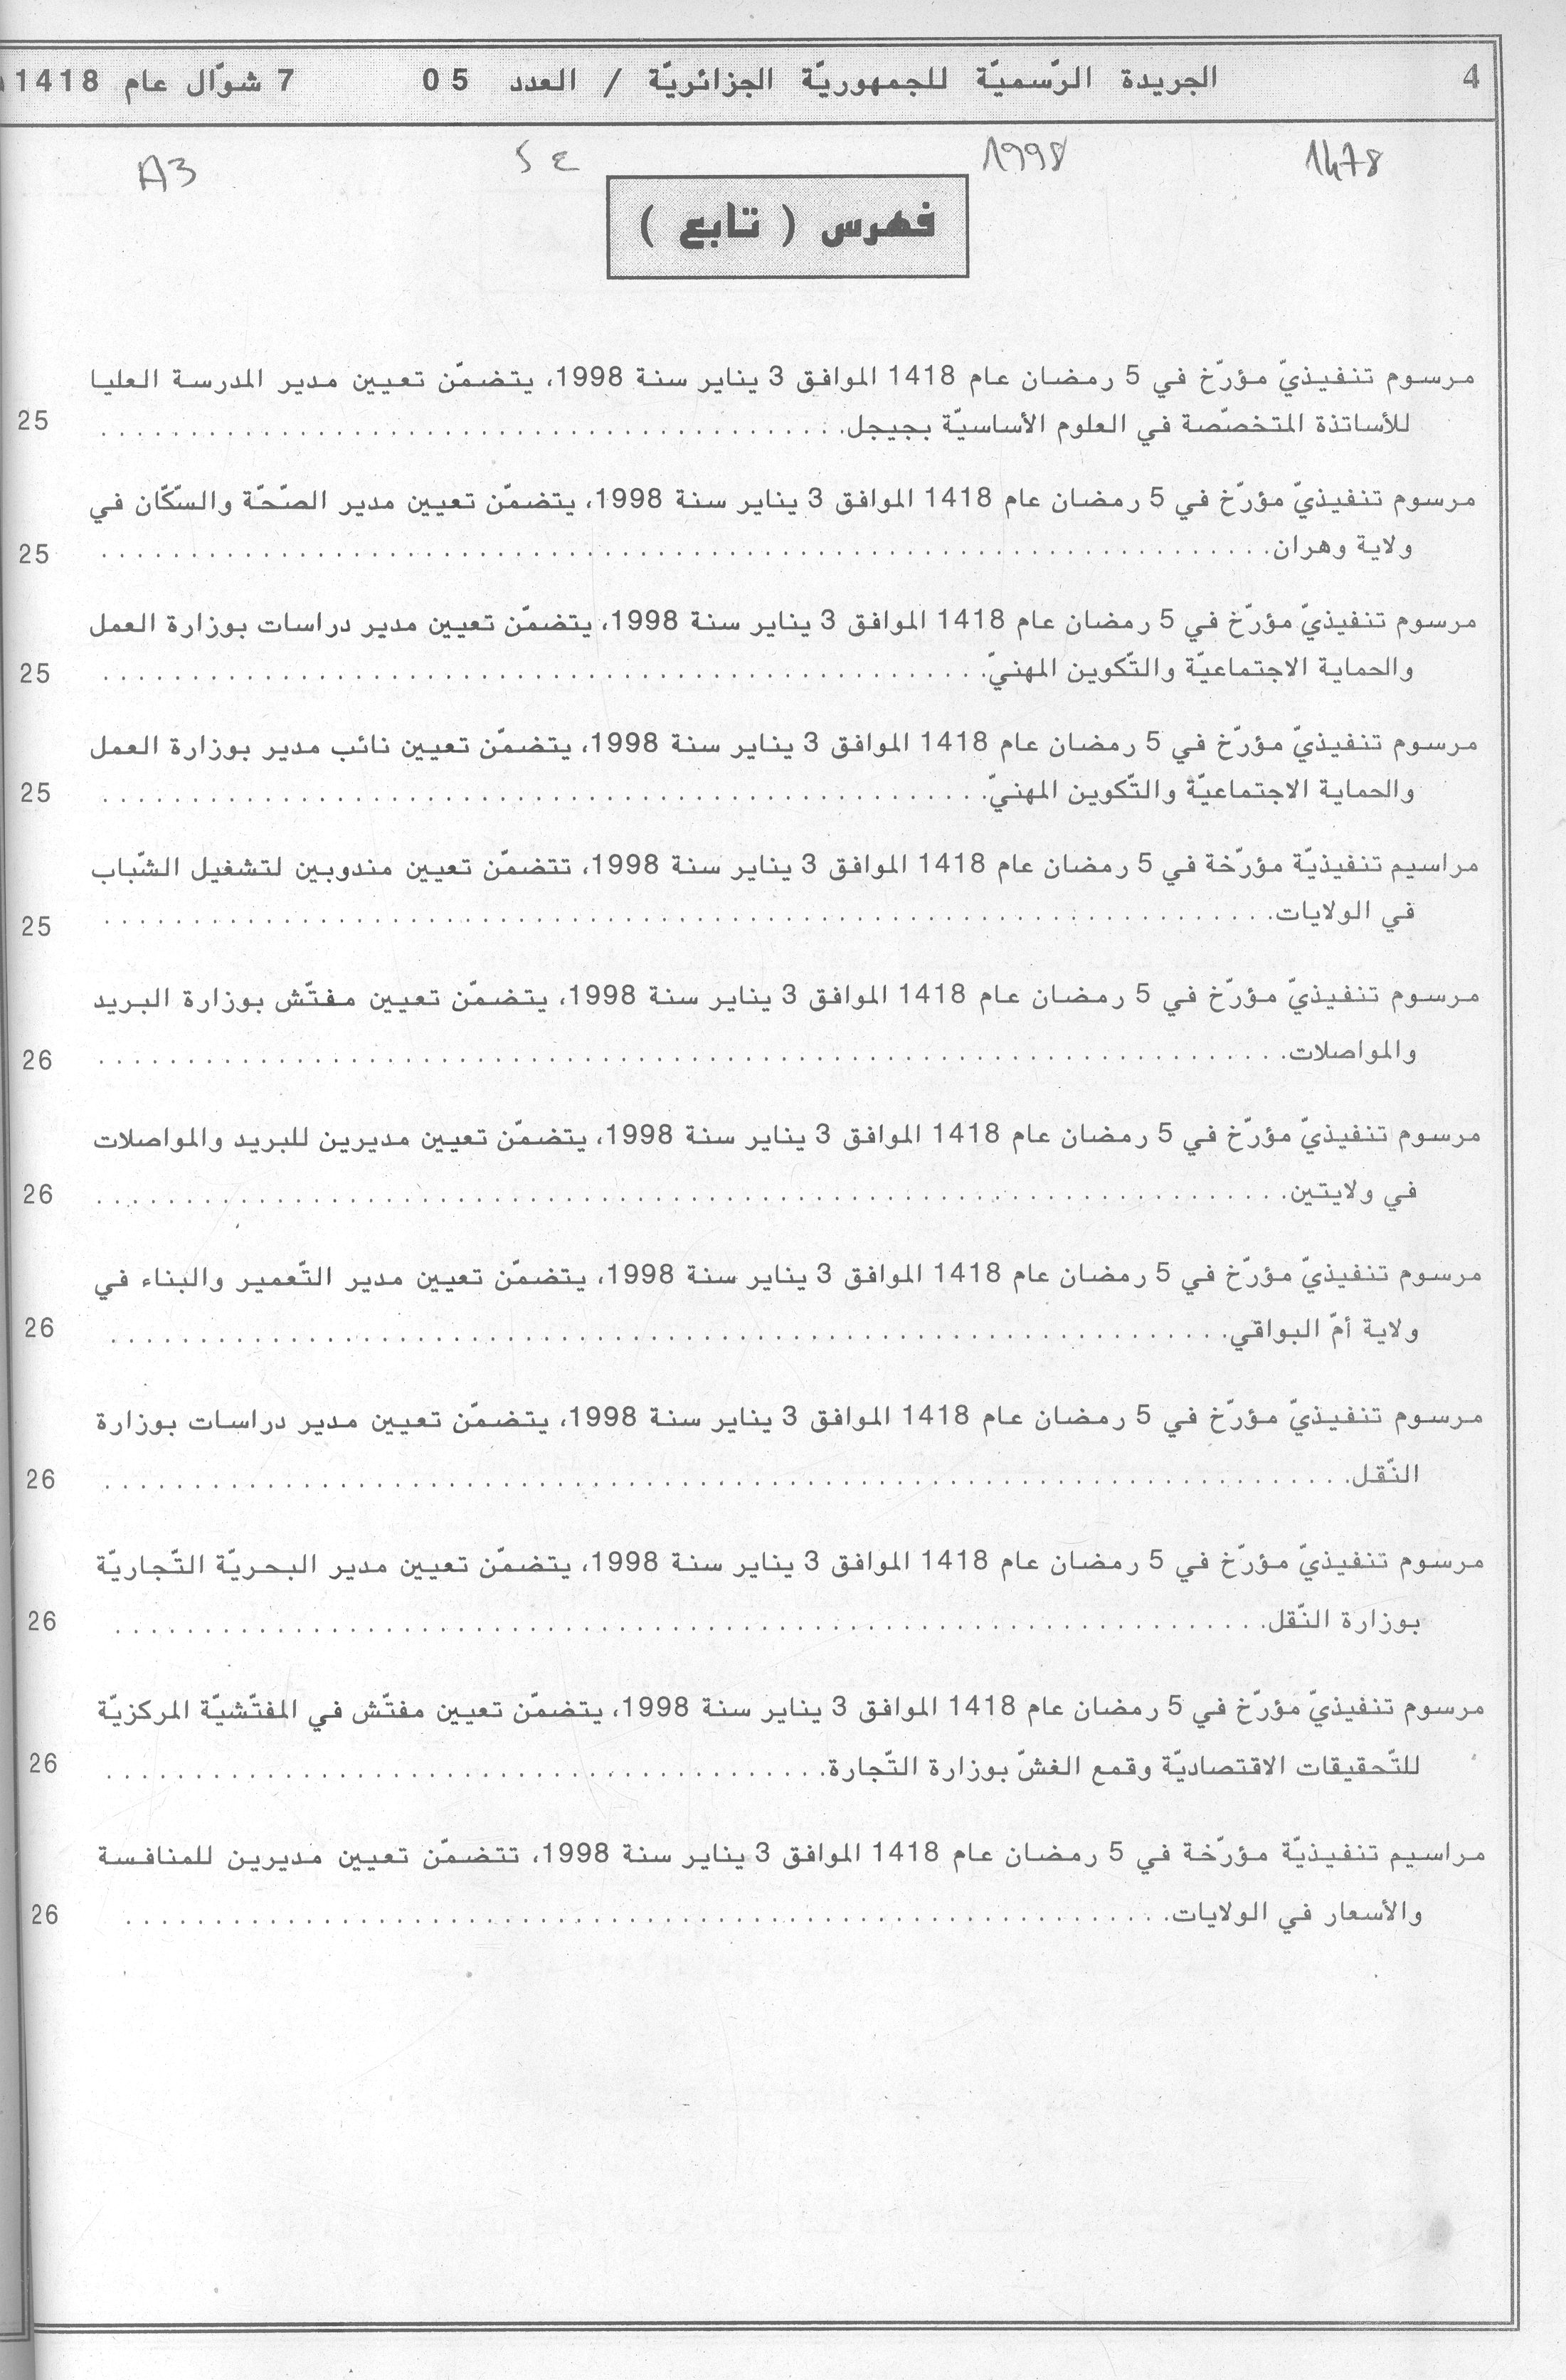 4 الجريدة الرّسميّة للجمهوريّة الجزائريّة / العدد 05 7 شوّال عام 1418
1478 1998 A3
فهرس ( تابع )
مرسوم تنفيذيّ مؤرّخ في 5 رمضان عام 1418 الموافق 3 يناير سنة 1998، يتضمّن تعيين مدير المدرسة العليا
للأساتذة المتخصّصة في العلوم الأساسيّة بجيجل. 25
مرسوم تنفيذيّ مؤرّخ في 5 رمضان عام 1418 الموافق 3 يناير سنة 1998، يتضمّن تعيين مدير الصّحّة والسّكّان في
ولاية وهران. 25
مرسوم تنفيذيّ مؤرّخ في 5 رمضان عام 1418 الموافق 3 يناير سنة 1998، يتضمّن تعيين مدير دراسات بوزارة العمل
والحماية الاجتماعيّة والتّكوين المهنيّ. 25
مرسوم تنفيذيّ مؤرّخ في 5 رمضان عام 1418 الموافق 3 يناير سنة 1998، يتضمّن تعيين نائب مدير بوزارة العمل
والحماية الاجتماعيّة والتّكوين المهنيّ. 25
مراسيم تنفيذيّة مؤرّخة في 5 رمضان عام 1418 الموافق 3 يناير سنة 1998، تتضمّن تعيين مندوبين لتشغيل الشّباب
في الولايات. 25
مرسوم تنفيذيّ مؤرّخ في 5 رمضان عام 1418 الموافق 3 يناير سنة 1998، يتضمّن تعيين مفتّش بوزارة البريد
والمواصلات. 26
مرسوم تنفيذيّ مؤرّخ في 5 رمضان عام 1418 الموافق 3 يناير سنة 1998، يتضمّن تعيين مديرين للبريد والمواصلات
في ولايتين. 26
مرسوم تنفيذيّ مؤرّخ في 5 رمضان عام 1418 الموافق 3 يناير سنة 1998، يتضمّن تعيين مدير التّعمير والبناء في
ولاية أمّ البواقي. 26
مرسوم تنفيذيّ مؤرّخ في 5 رمضان عام 1418 الموافق 3 يناير سنة 1998، يتضمّن تعيين مدير دراسات بوزارة
النّقل. 26
مرسوم تنفيذيّ مؤرّخ في 5 رمضان عام 1418 الموافق 3 يناير سنة 1998، يتضمّن تعيين مدير البحريّة التّجاريّة
بوزارة النّقل. 26
مرسوم تنفيذيّ مؤرّخ في 5 رمضان عام 1418 الموافق 3 يناير سنة 1998، يتضمّن تعيين مفتّش في المفتّشيّة المركزيّة
للتّحقيقات الاقتصاديّة وقمع الغشّ بوزارة التّجارة. 26
مراسيم تنفيذيّة مؤرّخة في 5 رمضان عام 1418 الموافق 3 يناير سنة 1998، تتضمّن تعيين مديرين للمنافسة
والأسعار في الولايات. 26